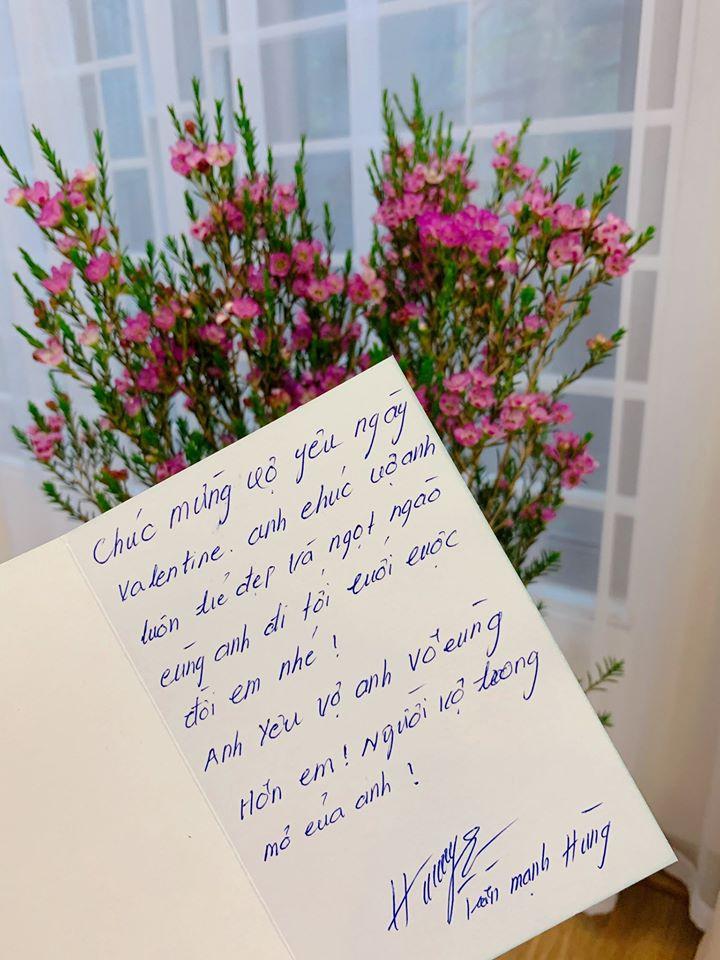 Chúc mừng vợ yêu ngày
valentine. anh chúc vợ anh
luôn trẻ đẹp và ngọt ngào
cùng anh đi tới cuối cuộc
đời em nhé !
Anh yêu vợ anh vô cùng
Hôn em ! Người vợ trong
mơ của anh !
Hung
Trần mạnh Hùng